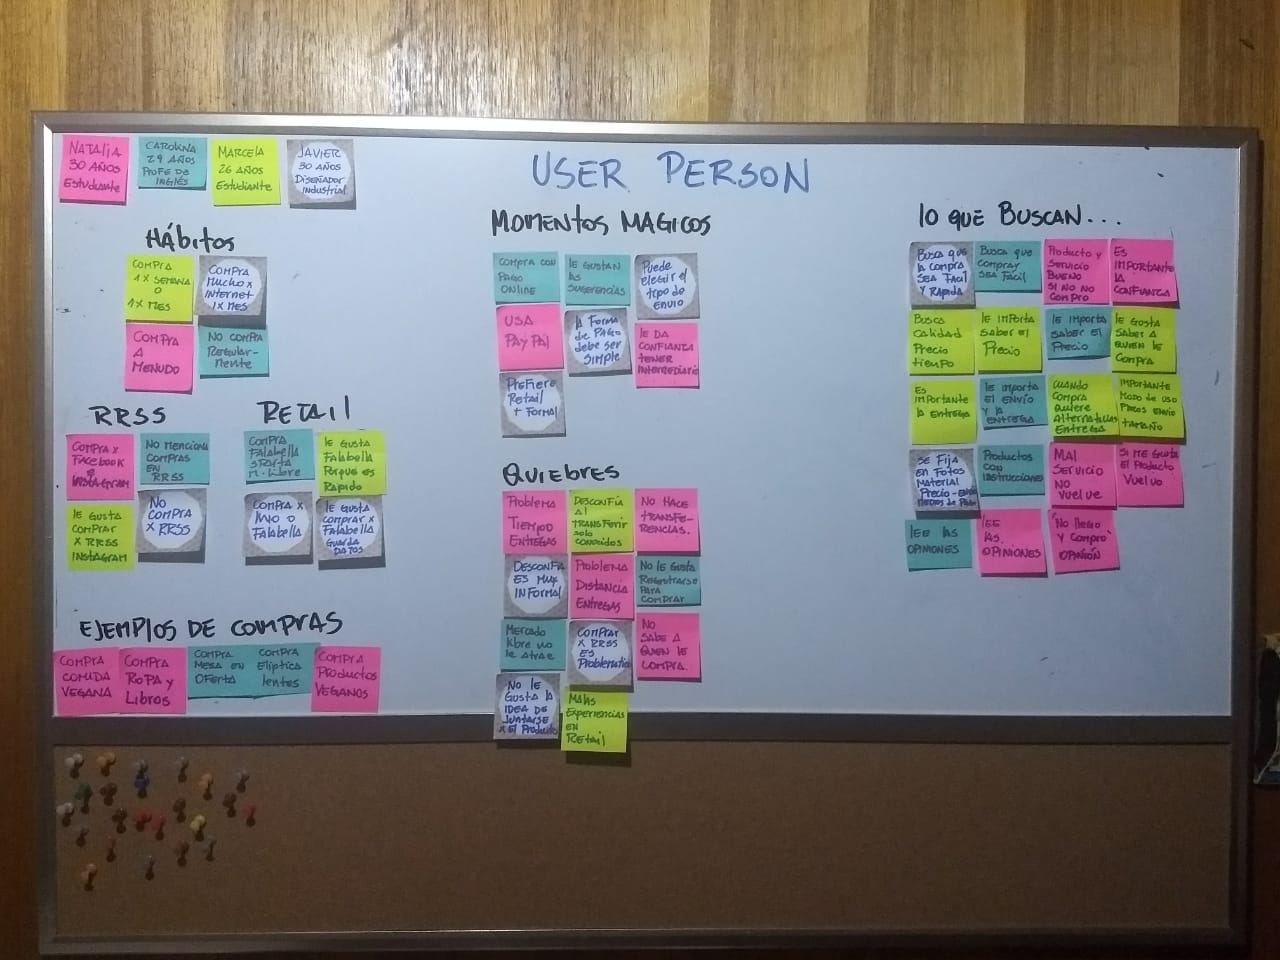 NATALIA
30 AÑOS
Estudiante
CAROLINA
29 AÑOS
PROFE DE
INGLÉS
MARCELA
26 AÑOS
Estudiante
JAVIER
30 AÑOS
Diseñador
Industrial
USER PERSON
HÁbitos
COMPRA
1 X SEMANA
O
1 X MES
COMPRA
MUCHO X
INTERNET
1X MES
COMPRA
A
MENUDO
NO COMPRA
REGULAR-
MENTE
RRSS
COMPRA X
FACEBOOK
INSTAGRAM
NO MENCIONA
COMPRAS
EN
RRSS
lE GUSTA
COMPRAR
X RRSS
INSTAGRAM
NO
COMPRA
X RRSS
RETAIL
COMPRA
FALABELLA
M. LIBRE
lE GUSTA
FALABELLA
PORQUE ES
RAPIDO
COMPRA X
O
FALABELLA
lE GUSTA
COMPRAR X
FALABELLA
GUARDA
DATOS
EJEMPLOS DE COMPRAS
COMPRA
COMIDA
VEGANA
COMPRA
ROPA Y
LIBROS
COMPRA
MESA EN
OFERTA
COMPRA
ELIPTICA
LENTES
COMPRA
PRODUCTOS
VEGANOS
MOMENTOS MAGICOS
COMPRA CON
PAGO
ONLINE
lE GUSTAN
lAS
SUGERENCIAS
Puede
elegir el
tipo de
ENVIO
USA
PAYPAl
lA FORMA
DE PAGO
debe ser
SIMPLE
lE DA
CONFIANZA
TENER
INTERMEDIARIO
PREFIERE
RETAIL
+ FORMAl
QUIEBRES
PROBLEMA
TIEMPO
ENTREGAS
DESCONFÍA
Al
TRANSFERIR
SOLO
CONOCIDOS
NO HACE
TRANSFE-
RENCIAS.
DESCONFÍA
ES MUY
INFORMAL
PROBLEMA
DISTANCIA
ENTREGAS
NO lE GUSTA
REGISTRARSE
PARA
COMPRAR
MERCADO
libre NO
le Atrae
COMPRAR
X RRSS
ES
PROBLEMATICO
NO
SABE A
QUIEN lE
COMPRA.
NO lE
GUSTA lA
IDEA DE
JUNTARSE
X El PRODUCTO
MAlAS
EXPERIENCIAS
EN
RETAIL
lO QUE BUSCAN...
BUSCA QUE
lA COMPRA
SEA FACIL
Y RAPIDA
BUSCA QUE
COMPRAR
SEA FACIL
PRODUCTO Y
SERVICIO
BUENO
SI NO NO
COMPRO
ES
IMPORTANTE
lA
CONFIANZA
BUSCA
CALIDAD
PRECIO
TIEMPO
lE IMPORTA
SABER El
PRECIO
lE IMPORTA
SABER El
PRECIO
lE GUSTA
SABER A
QUIEN lE
COMPRA
ES
IMPORTANTE
lA ENTREGA
lE IMPORTA
El ENVÍO
Y lA
ENTREGA
CUANDO
COMPRA
QUIERE
ALTERNATIVAS
ENTREGA
IMPORTANTE
MODO DE USO
PRECIOS ENVIO
TAMAÑO
SE FIJA
EN FOTOS
MATERIAL
PRECIO - ENVIO
MEDIOS DE PAGO
PRODUCTOS
CON
INSTRUCCIONES
MAl
SERVICIO
NO
VUELVE
SI ME GUSTA
El PRODUCTO
VUELVO
lEE lAS
OPINIONES
lEE
lAS
OPINIONES
Y COMPRO
OPINIÓN